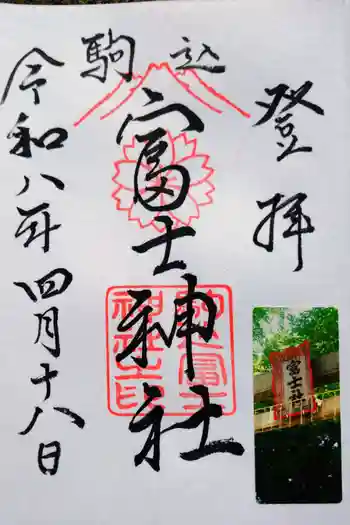 登拝
駒込
富士神社
令和八年四月十八日
富士社